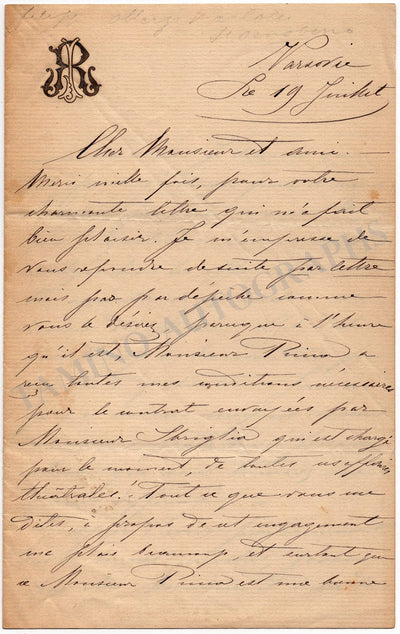 Varsovie
Le 19 Juillet
Cher Monsieur et ami.
Merci mille fois, pour votre
charmante lettre qui m'a fait
bien plaisir. Je m'empresse de
vous repondre de suite par lettre
mais pas par depeche comme
vous le désirez, parceque à l'heure
qu'il est Monsieur a
reçu toutes mes conditions nécessaires
pour le contrat envoyées par
Monsieur Sbriglia qui est chargé
pour le moment, de toutes mes affaires
théatrales. Tout ce que vous me
dites, à propos de cet engagement
me plais beaucoup, et surtout que
ce Monsieur est une bonne
TAMINO AUTOGRAPHS